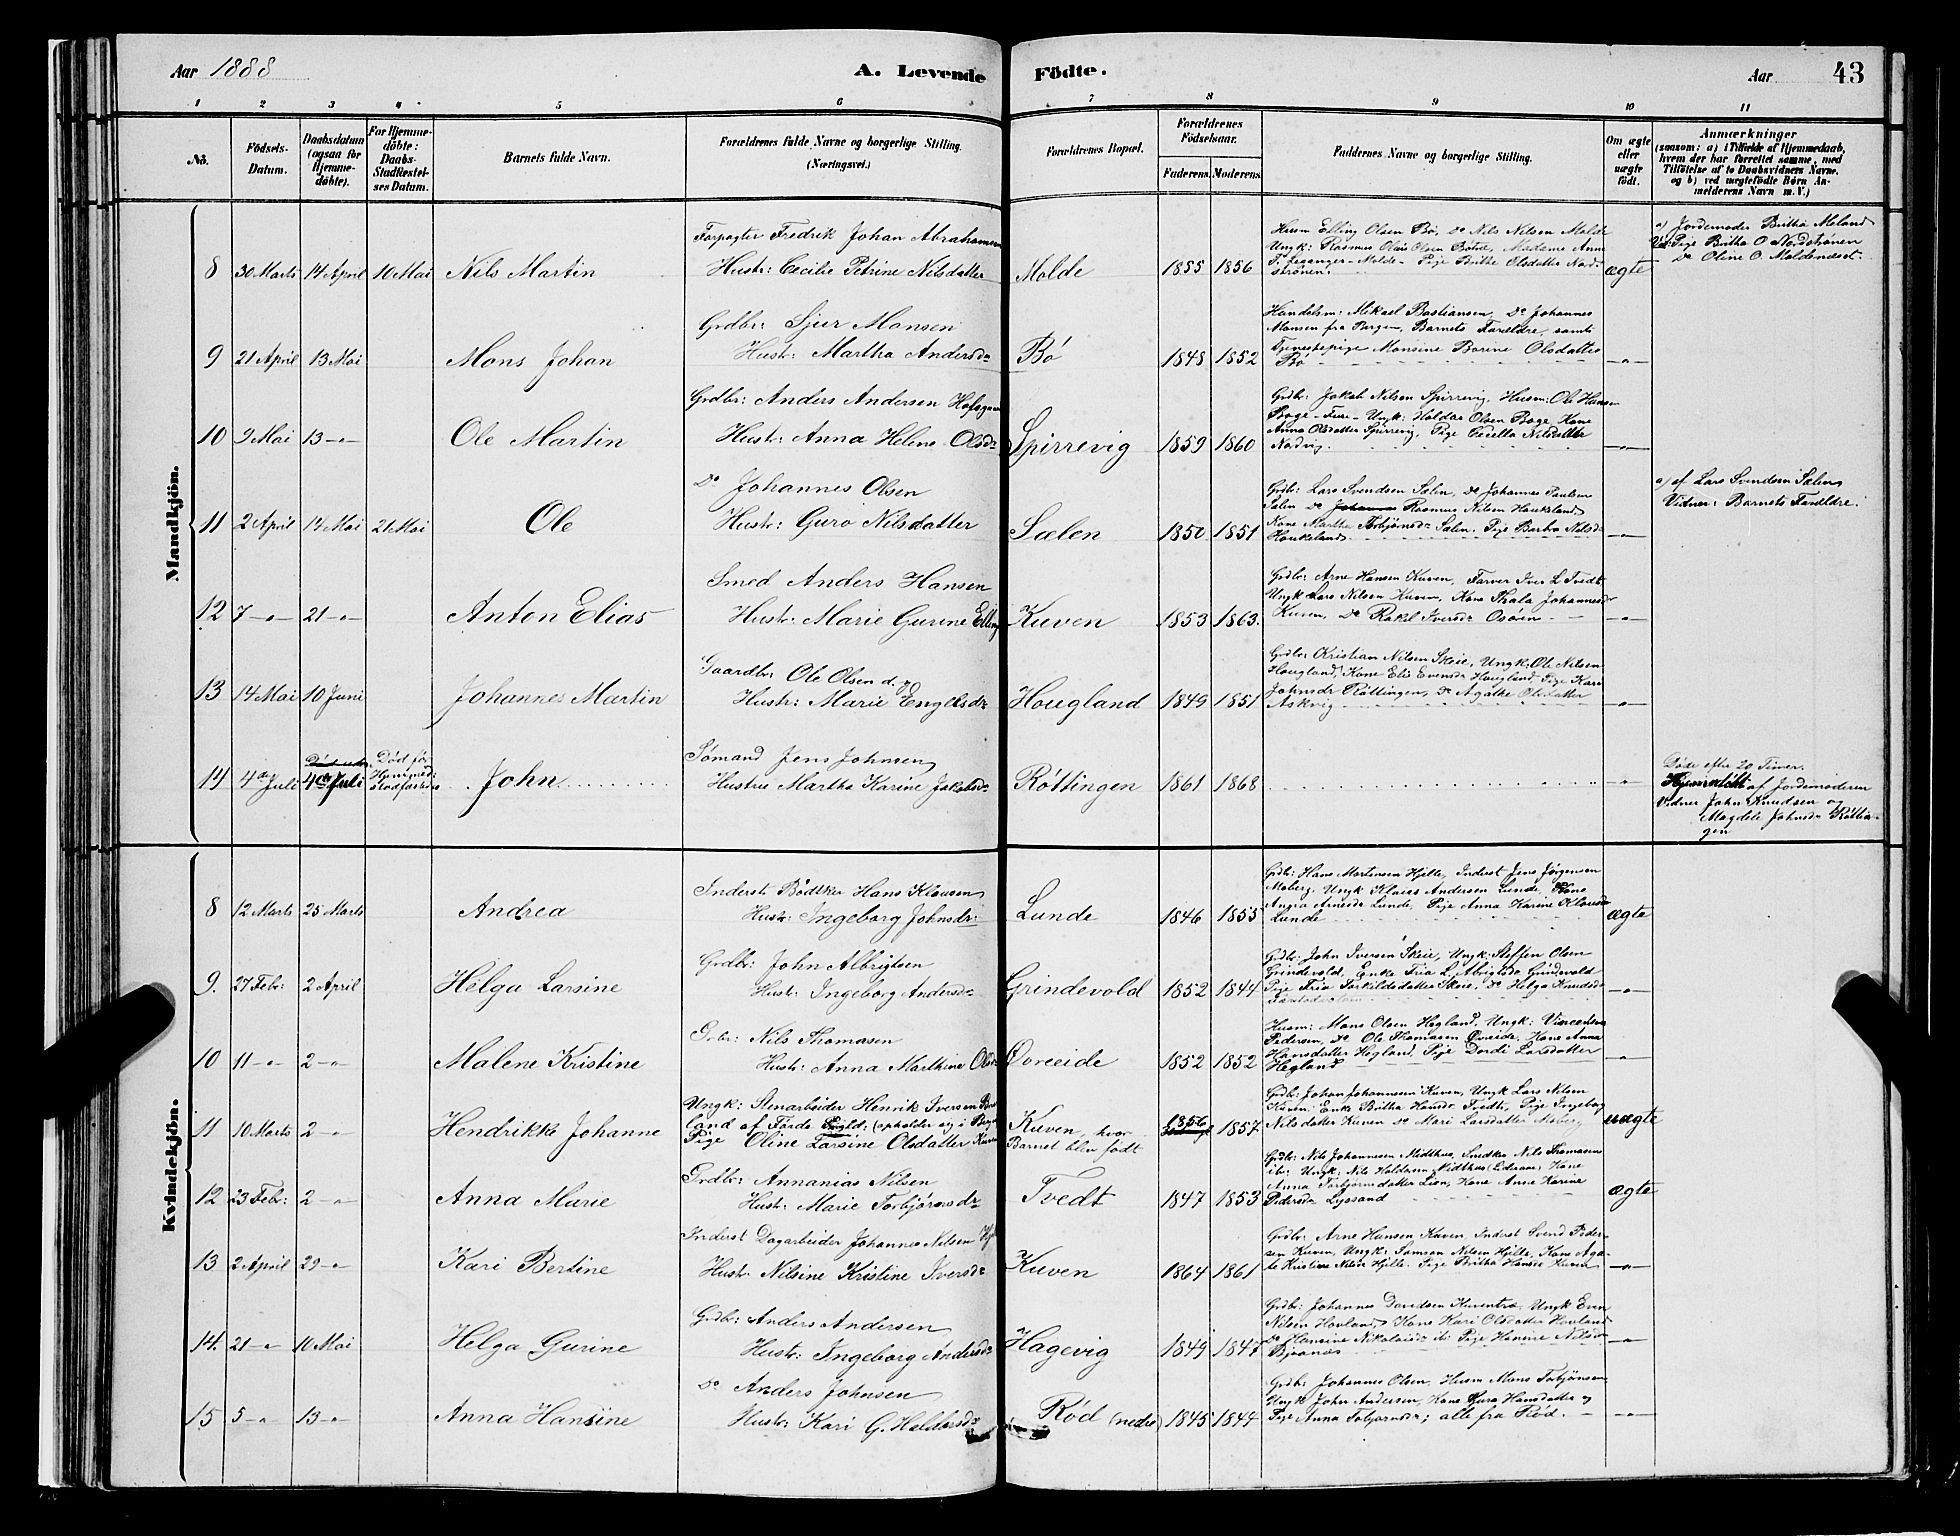 Aar 1888
A. Levende Födte.
Aar
43
1 2 3 4 5 6 7 8 9 10 11
No.
Födsels-Datum.
Daabsdatum (ogsaa for Hjemme-döbte).
For Hjemme-döbte: Daabs-Stadfæstel-ses Datum.
Barnets fulde Navn.
Forældrenes fulde Navne og borgerlige Stilling. (Næringsvei.)
Forældrenes Bopæl.
Forældrenes Födselsaar.
Faderens. Moderens.
Faddernes Navne og borgerlige Stilling.
Om ægte eller uægte født.
Anmærkninger
(saasom: a) i Tilfælde af Hjemmedaab, hvem der har forrettet samme, med Tilföielse af to Daabsvidners Navne, og b) ved uægtefödte Börn An-melderens Navn m. V.)
Mandkjön.
Forpagter Fredrik Johan Abrahamsen
8 30 Marts 14 April 10 Mai Nils Martin Hustr: Cecilie Petrine Nilsdatter Molde 1855 1856 ægte
Husm Elling Olsen Bø, Do Nils Nilsen Molde
Ungk: Rasmus Olsen Bøtre, Madame Anne
Molde Pige Brithe Olsdatter Nord-
strønen.
a) Jordemoder Britha Meland
Vid: Pige Britha O Nordstrønen
Do Oline O. Moldenæset.
Grdbr: Sjur Monsen
9 21 April 13 Mai Mons Johan Hustr: Martha Andersdr Bø 1848 1852 -"-
Handelsm: Mikael Bastiansen, Do Johannes
Monsen fra Bergen, Barnets Forældre, samt
Tjenestepige Monsine Borine Olsdatter
Bø
Grdbr: Anders Andersen
10 9 Mai 13 -"- Ole Martin Hustr: Anna Helene Olsdr Spirrevig 1859 1860 -"-
Grdb: Jakob Nilsen Spirrevig, Husm: Ole Hansen
Boge Ungk: Haldor Olsen Boge Kone
Anna Olsdatter Spirrevig, Pige Nilsdatter
Nordvig.
Do Johannes Olsen
11 2 April 14 Mai 21 Mai Ole Hustr: Guro Nilsdatter Sælen 1850 1851 -"-
Grdb: Lars Svendsen Sælen, Do Johannes Paulsen
Sælen Do Rasmus Nilsen Haukeland
Kone Martha Torbjørnsdr Sælen. Pige Barbro Nilsdr
Haukeland
a) af Lars Svendsen Sælen
Vidner: Barnets Forældre.
Smed Anders Hansen
12 7 -"- 21 -"- Anton Elias Hustr: Marie Gurine Kuven 1853 1863. -"-
Grdb: Arne Hansen Kuven, Farver Iver L Tvedt
Ungk Lars Nilsen Kuven, Kone Thala Johannesdr
Kuven, Do Rakel Iversdr Osøren
Gaardbr: Ole Olsen d. y
13 14 Mai 10 Juni Johannes Martin Hustr: Marie Engelsdr Hougland 1849 1851 -"-
Grdb: Kristian Nilsen Skeie, Ungk: Ole Nilsen
Hougland, Kone Elis Evensdr Hougland, Pige Kari
Johnsdr Røttingen, Do Agathe Olsdatter
Askvig
Sømand Jens Johnsen
14 4de Juli 4de Juli Død før Hjemmed: stadfæstedes John Hustru Martha Karine Jakobsdr Røttingen 1861 1868 -"-
Døde efter 20 Timer.
Hjemmedøbt af Jordemoderen
Vidner John Knudsen og
Magdele Johnsdr Røttin-
gen
Kvindekjön.
Inderst Bødtker Hans Klausen
8 12 Marts 25 Marts Andrea Hustr: Ingeborg Johnsdr: Lunde 1846 1855 ægte
Grdb: Hans Mortensen Hjelle, Inderst Jens Jørgensen
Moberg, Ungk Klaus Andersen Lunde, Kone
Arnesdr Lunde, Pige Anna Karine Klausdr
Lunde
Grdbr: John Albrigtsen
9. 27 Febr: 2 April Helga Larsine Hustr: Ingeborg Andersdr Grindevold 1852 1844 -"-
Grdb: John Iversen Skeie, Ungk: Steffen Olsen
Grindevold, Enke L. Albrigtsdr Grindevold
Pige Torkildsdatter Skeie, Do Helga Knudsdr
Nils Thomasen
10 11 -"- 2 -"- Malene Kristine Hustr: Anna Marthine Olsdr Øvreeide 1852 1852 -"-
Husm: Mons Olsen Hegland, Ungk: Vincentsen
Pedersen, Do Ole Thomasen Øvreide, Kone Anna
Hansdatter Hegland, Pige Dordi Larsdatter
Hegland
Ungk: Stenarbeider Henrik Iversen
land af Førde Prgld: (opholder sig i Bergen
11 10 Marts 2 -"- Hendrikke Johanne Pige Oline Larsine Olsdatter Kuven Kuven, hvor Barnet blev født 1856 1857. uægte
Grdb: Johan Johannesen Kuven, Ungk Lars Nilsen
Kuven, Enke Britha Hansdr Tvedt, Pige Ingeborg
Nilsdatter Kuven Do Mari Larsdatter Moberg
Grdbr: Annanias Nilsen
12 23 Febr: 2 -"- Anna Marie Hustr: Marie Torbjørnsdr Tvedt 1847 1853 ægte
Grdb: Nils Johannesen Midthus, Snedker Nils Thomasen
ib: Ungk: Nils Haldorsen Midthus Kone
Anna Torbjørnsdatter Lien, Kone Anne Karine
Pedersdr Lyssand
Inderst Dagarbeider Johannes Nilsen
13 2 April 29 -"- Kari Bertine Hustr: Nilsine Kristine Iversdr Kuven 1864 1861 -"-
Grdb: Arne Hansen Kuven, Inderst Svend Peder-
sen Kuven, Ungk: Samson Nilsen Hjelle, Kone Aga-
te Kristine Nilsdr Hjelle. Pige Britha Hansdr Kuven
Grdb: Anders Andersen
14. 21 -"- 10 Mai Helga Gurine Hustr: Ingeborg Andersdr Hagevig 1849 1847 -"-
Grdb: Johannes Davidsen Kuventræ, Ungk Even
Nilsen Hovland, Kone Kari Olsdatter Hovland
Do Hansine Nikolaisdr ib: Pige Hansine Nilsdr
Bjøanes
Do Anders Johnsen
15 5 -"- 13 -"- Anna Hansine Hustr: Kari G. Haldorsdr Rød (nedre) 1845 1844 -"-
Grdb: Johannes Olsen, Husm Mons Tobjønsen
Ungk John Andersen, Kone Guro Hansdatter og
Pige Anna Tobjørnsdr; alle fra Rød.